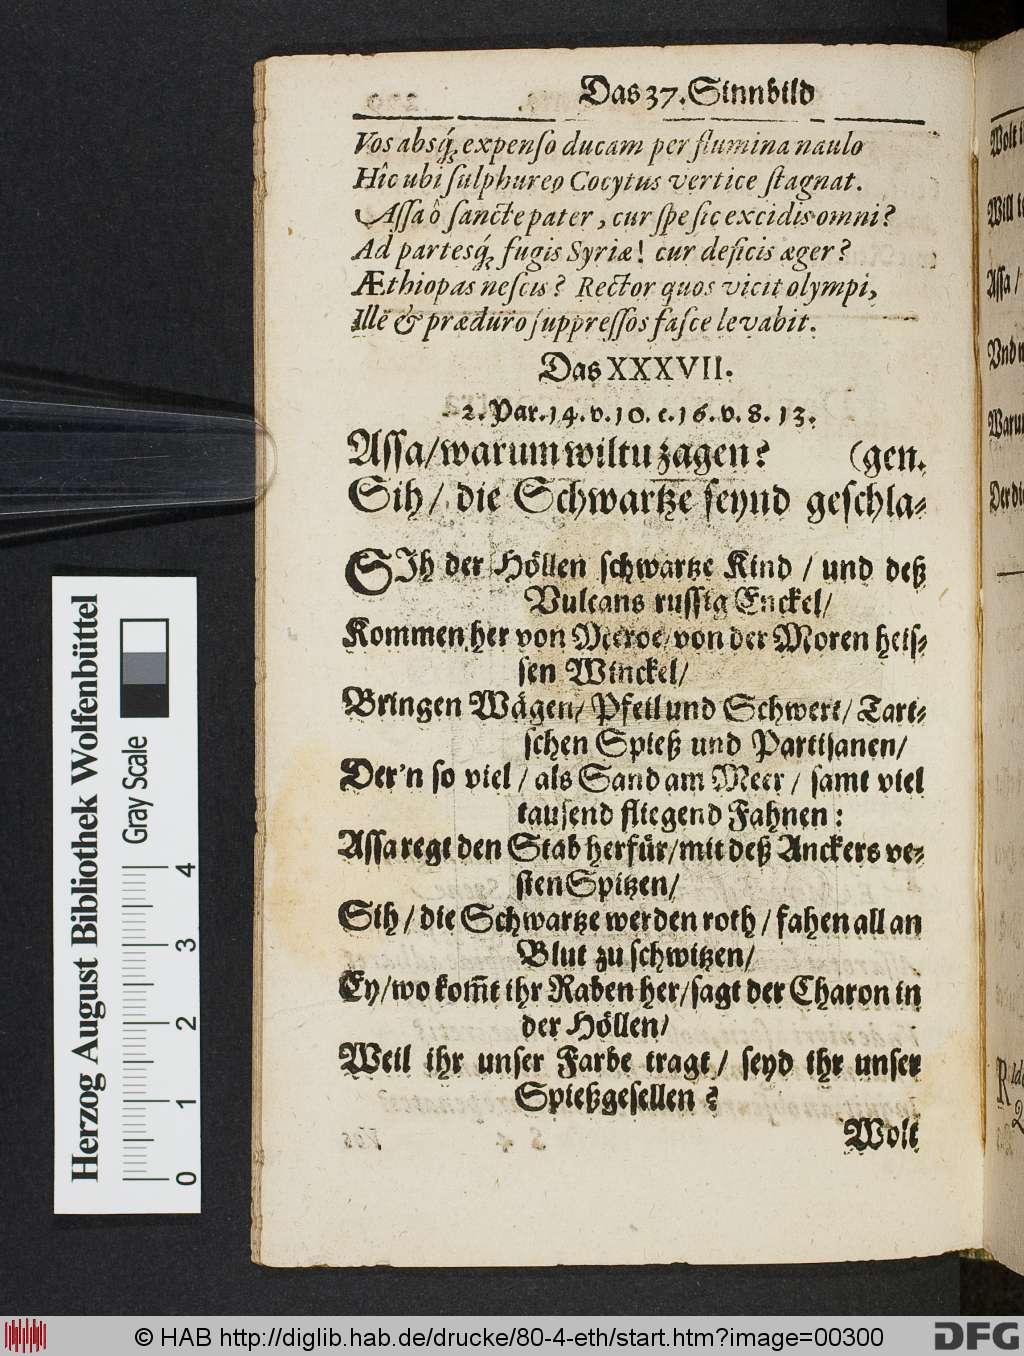 Das 37. Sinnbild
Vos absq́; expenso ducam per flumina naulo
Hîc ubi sulphureo Cocytus vertice stagnat.
Assa ô sancte pater, cur spe sic excidis omni?
Ad partesq́; fugis Syriæ! cur deficis æger?
Æthiopas nescis? Rector quos vicit olympi,
Ille & præduro suppressos fasce levabit.
Das XXXVII.
2. Par. 14. v. 10. c. 16. v. 8. 13.
Assa/ warum wiltu zagen? (gen.
Sih/ die Schwartze seynd geschla-
SIh der Höllen schwartze Kind / und deß
Vulcans russig Enckel/
Kommen her von Meroe/ von der Moren heis-
sen Winckel/
Bringen Wägen/ Pfeil und Schwert/ Tart-
schen Spieß und Partisanen/
Der'n so viel / als Sand am Meer / samt viel
tausend fliegend Fahnen:
Assa regt den Stab herfür/ mit deß Anckers ve-
sten Spitzen/
Sih / die Schwartze werden roth / fahen all an
Blut zu schwitzen/
Ey/ wo kom̃t ihr Raben her/ sagt der Charon in
der Höllen/
Weil ihr unser Farbe tragt / seyd ihr unser
Spießgesellen?
Wolt
Wolt
Will
Assa /
Und
Warum
Der
Herzog August Bibliothek Wolfenbüttel
Gray Scale
0 1 2 3 4
© HAB http://diglib.hab.de/drucke/80-4-eth/start.htm?image=00300
DFG